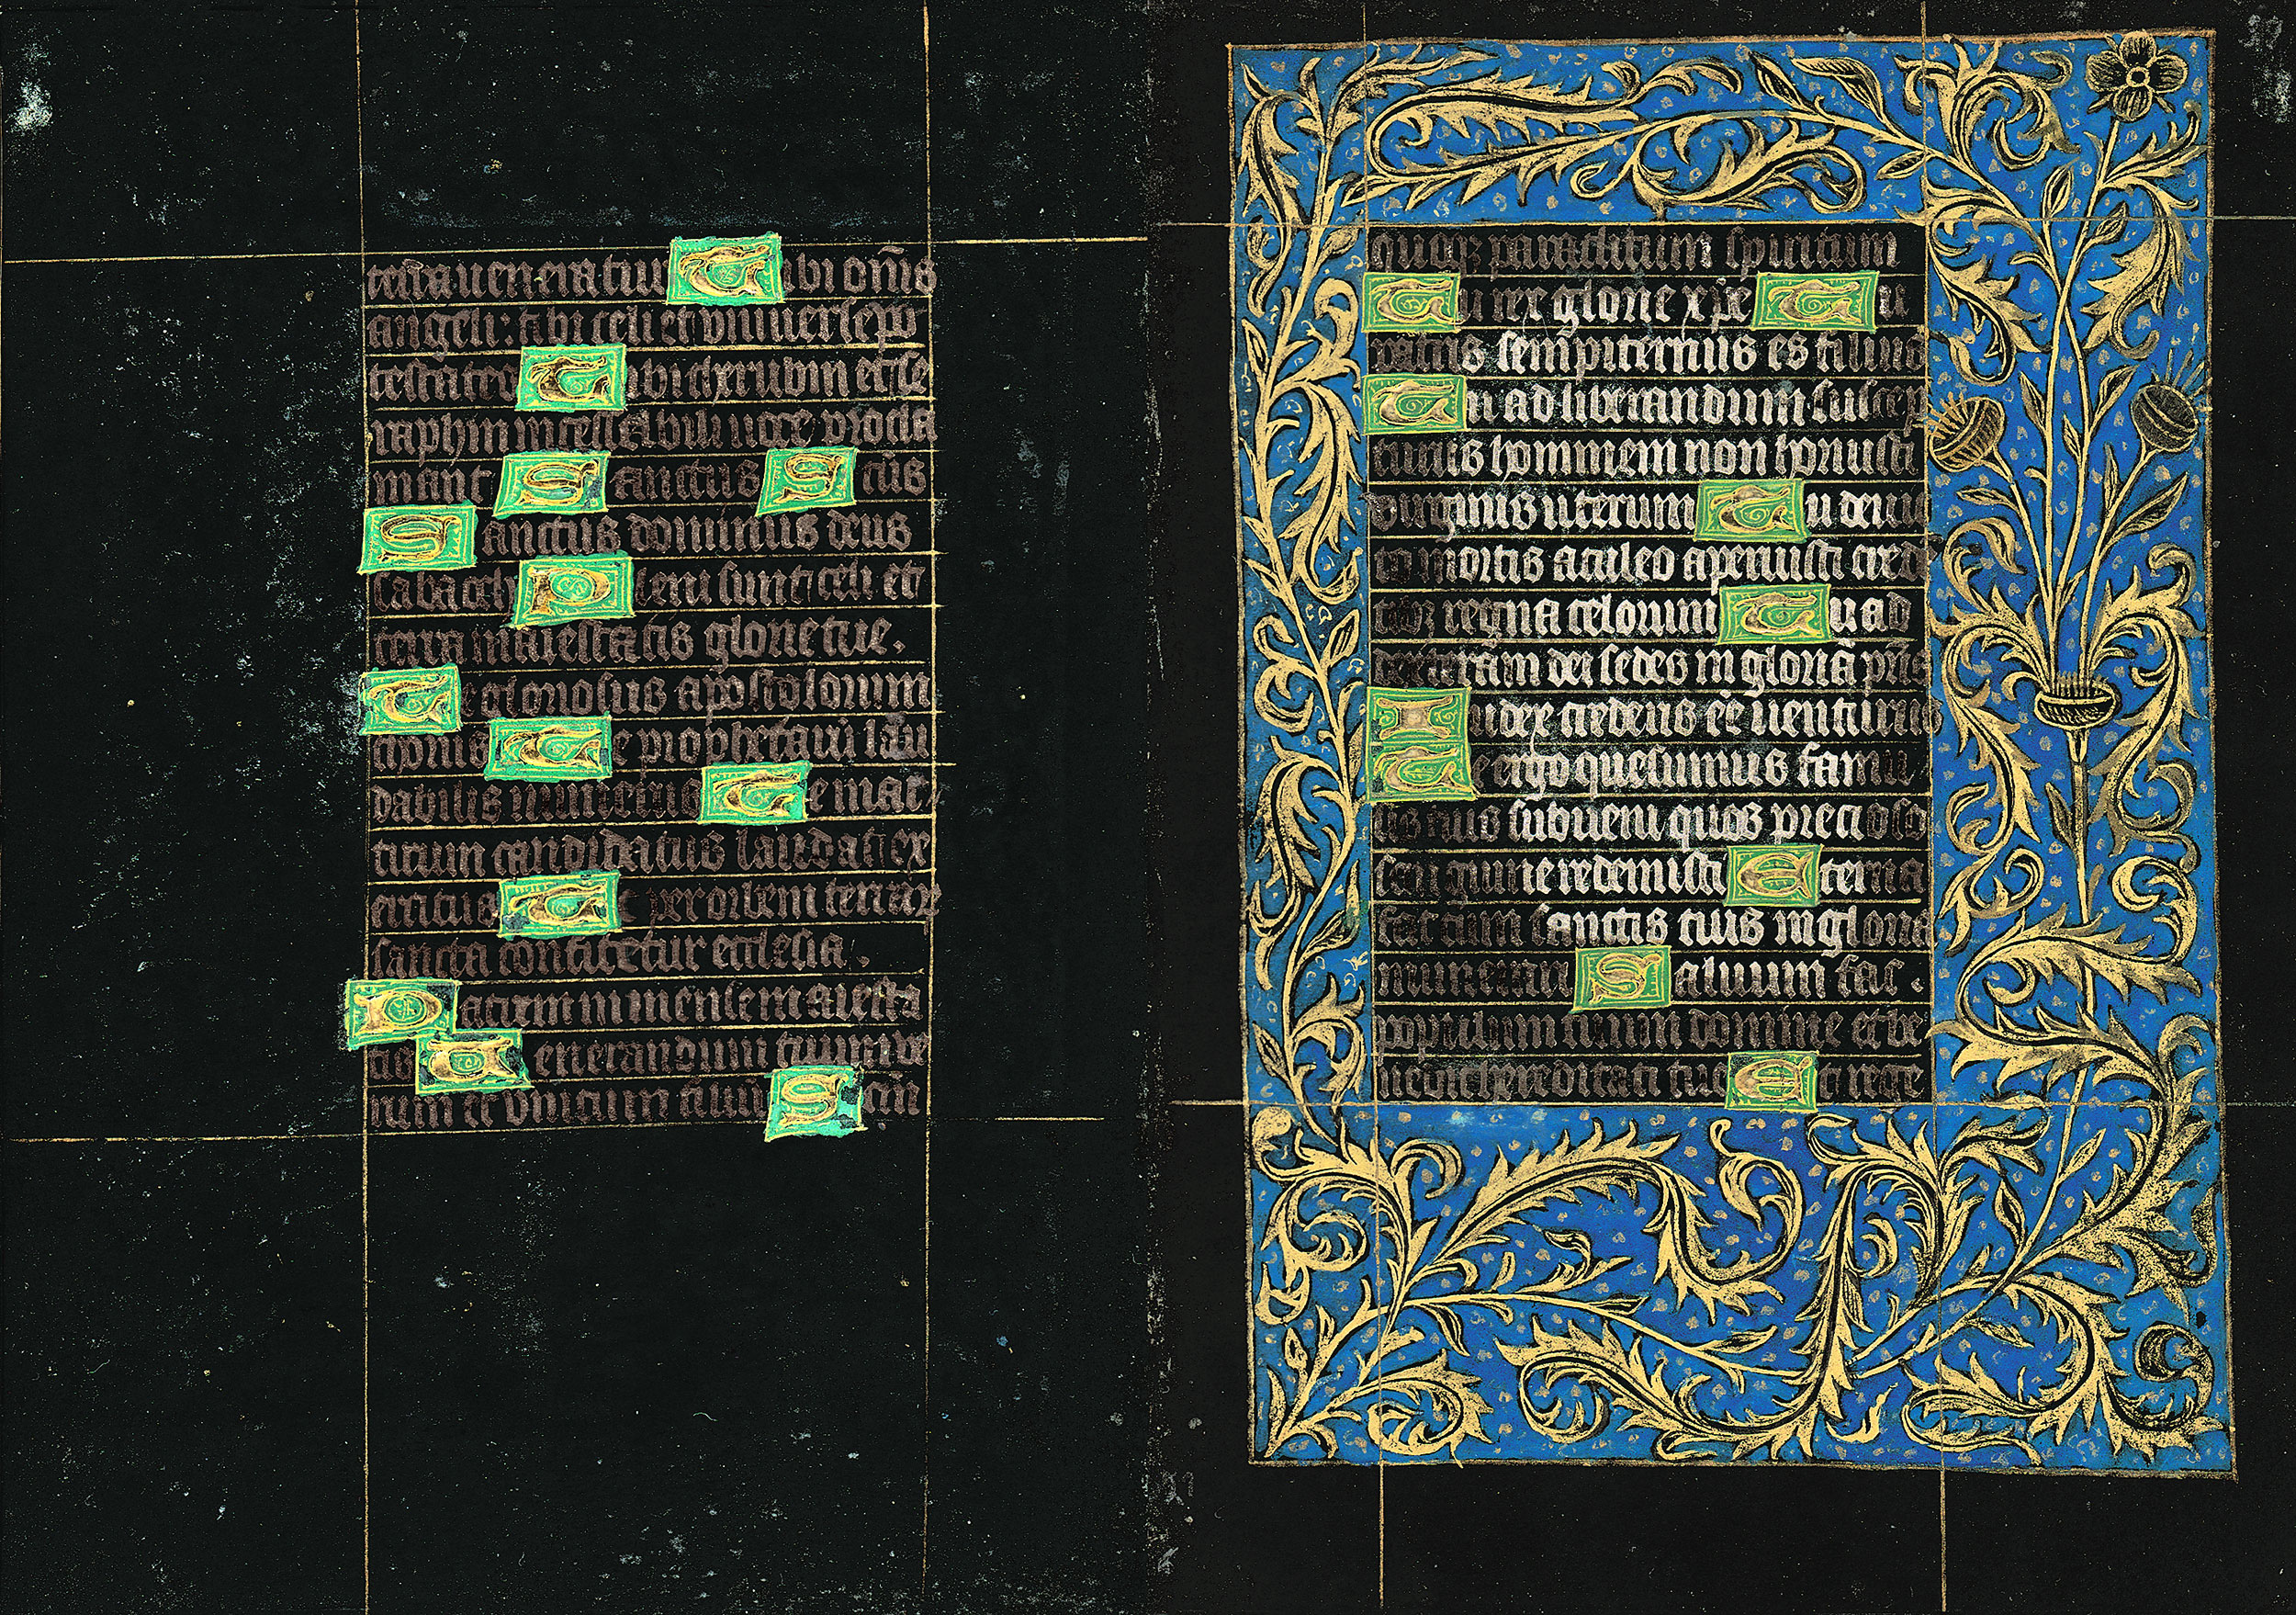 terra veneratur Tibi om̄s
angeli: tibi celi et vniuerse po
testates Tibi cherubim et se
raphin incessabili uoce procla
mant Sanctus Sctūs
Sanctus dominus deus
sabaoth Pleni sunt celi et
terra maiestatis glorie tue.
Te gloriosus apostolorum
chorus Te prophetarū lau
dabilis numerus Te mar
tirum candidatus laudat ex
ercitus Te per orbem terrarꝫ
sancta confitetur ecclesia.
Patrem immense maiesta
tis Uenerandum tuum ve
rum et vnicum filiū Sctm̄
quoqꝫ paraclitum spiritum
Tu rex glorie xp̄e Tu
patris sempiternus es filius
Tu ad liberandum suscep
turus hominem non horruisti
virginis uterum Tu deuic
to mortis aculeo aperuisti crede
tibꝫ regna celorum Tu ad
dexteram dei sedes in gloria pr̄is
Iudex crederis eē uenturus
Te ergo quesumus famu
lis tuis subueni quos precioso
sanguine redemisti Eterna
fac cum sanctis tuis in gloria
munerari Saluum fac.
populum tuum domine et be
nedic hereditati tue Et rege